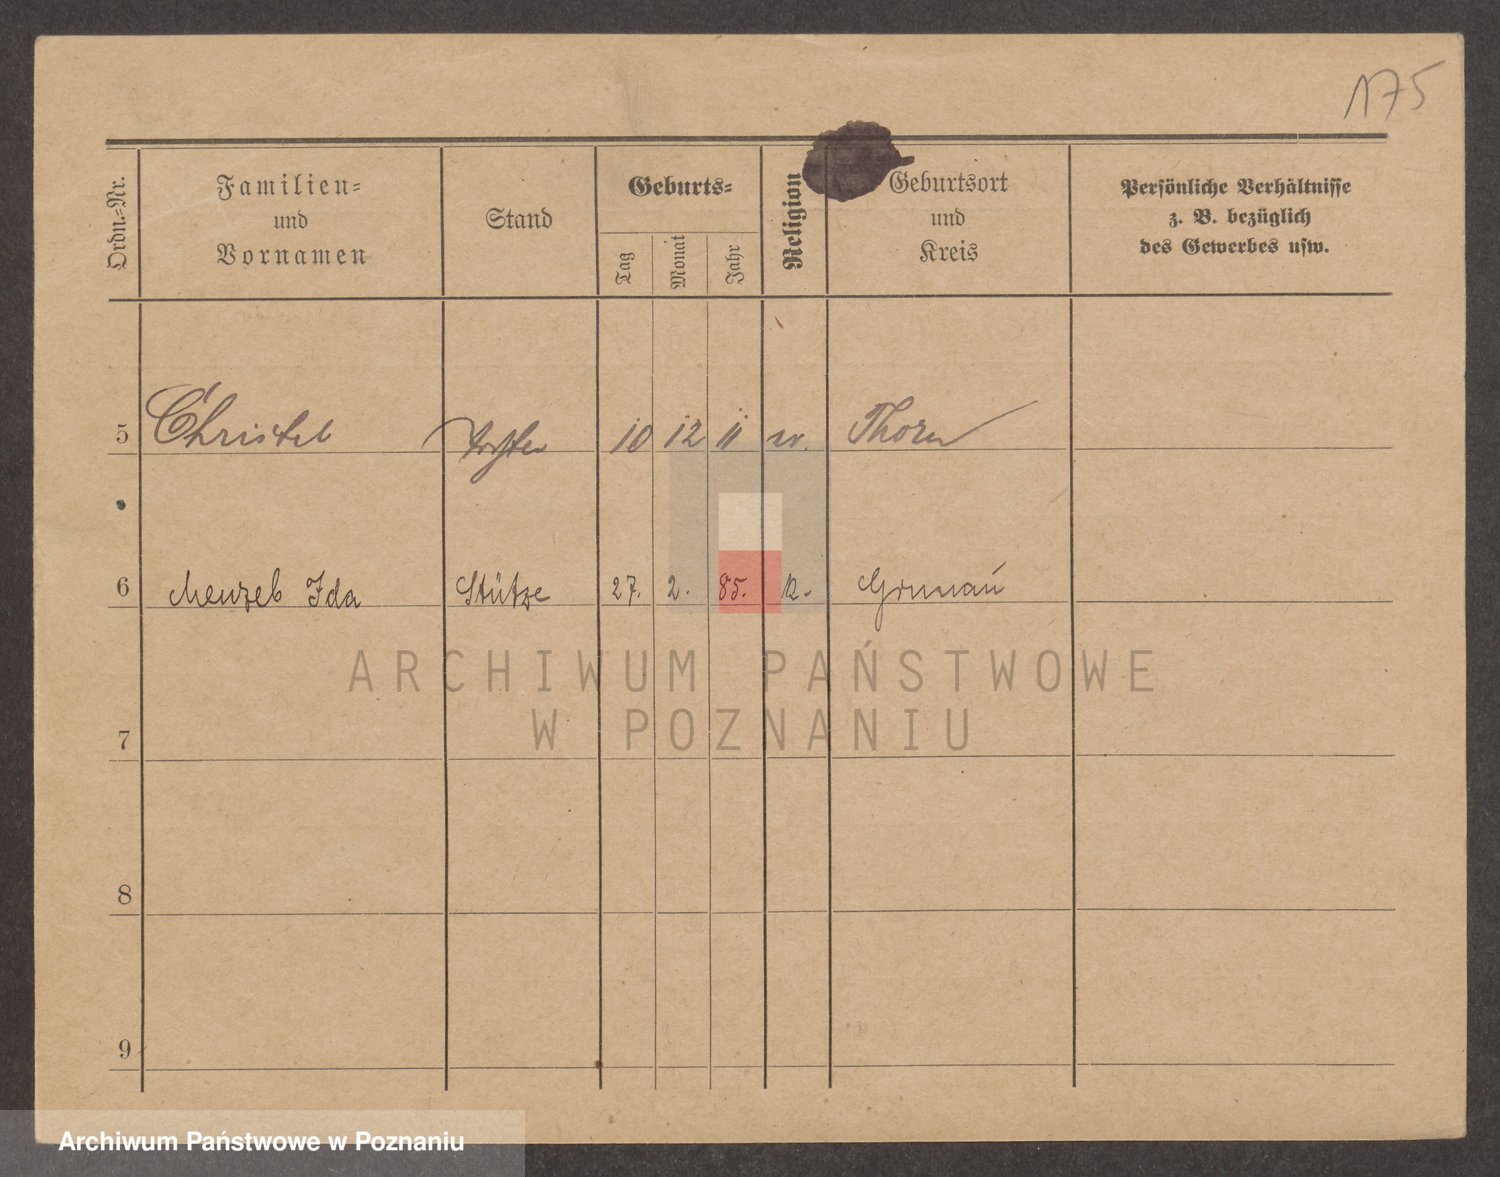 175
Ordn.=Nr.
Familien=
und
Vornamen
Stand
Geburts=
Tag
Monat
Jahr
Religion
Geburtsort
und
Kreis
Persönliche Verhältnisse
z. B. bezüglich
des Gewerbes usw.
5 Christel 10 12 11 Thorn
6 Menzel Ida Stütze 27. 2. 85. k. Grunau
ARCHIWUM PAŃSTWOWE
W POZNANIU
7
8
9
Archiwum Państwowe w Poznaniu